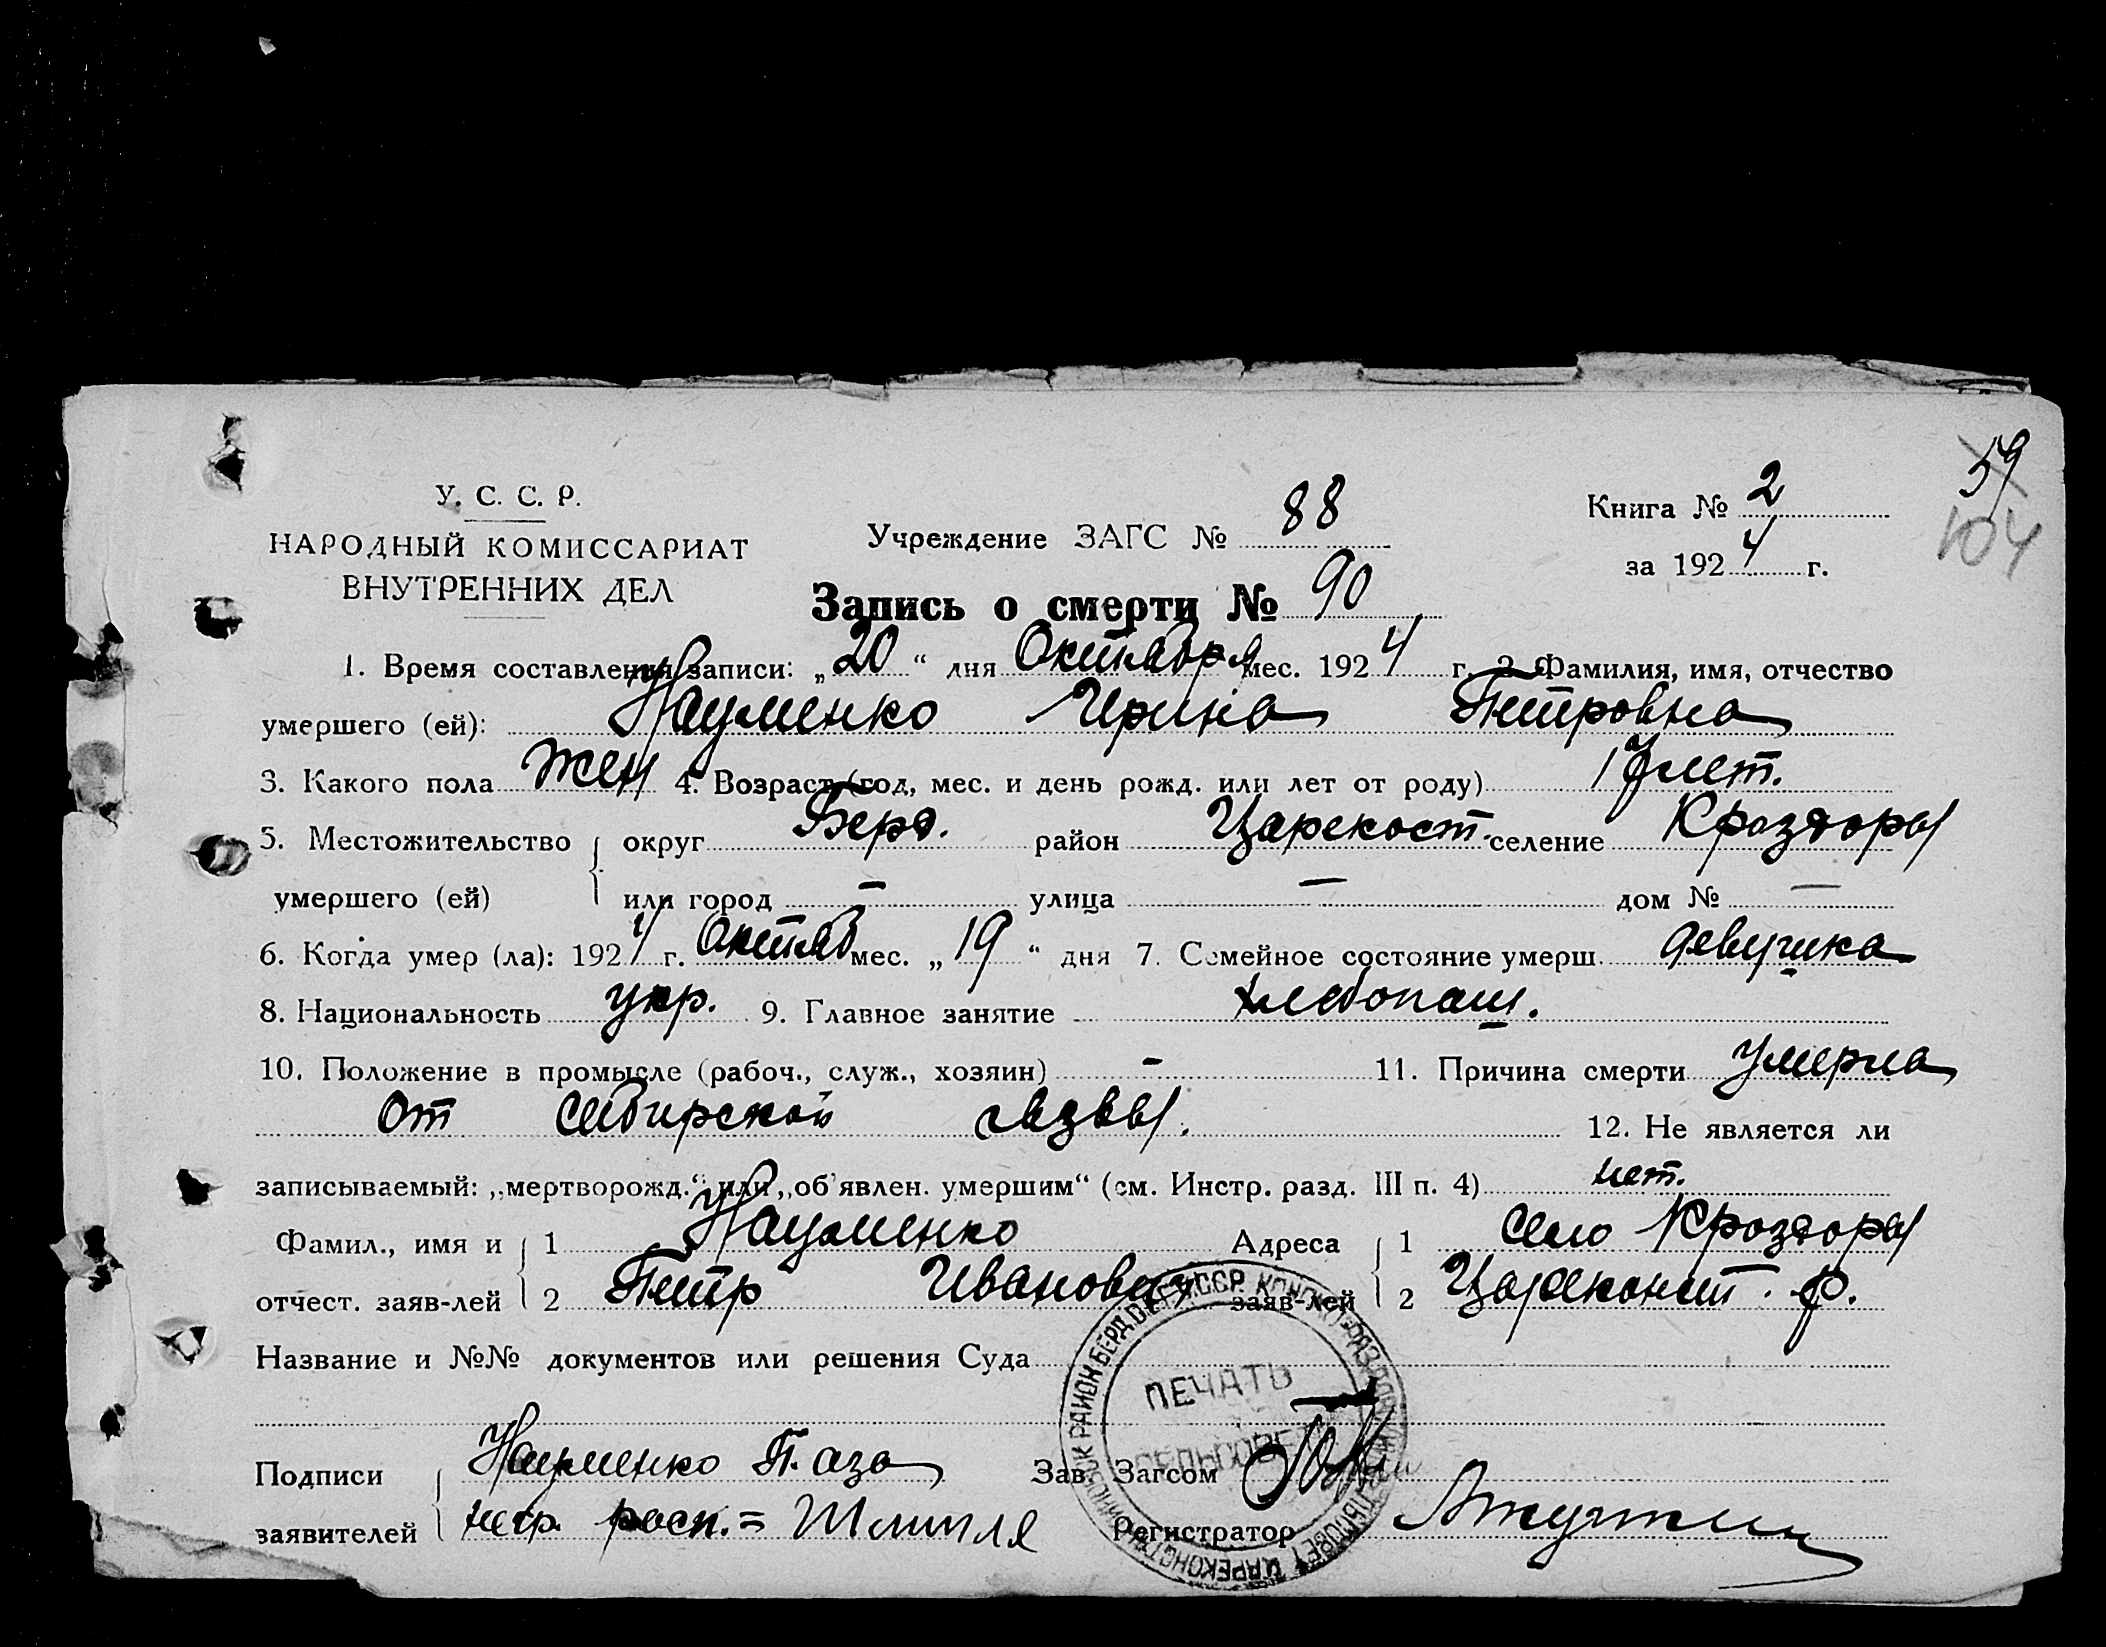 59
104
У. С. С. Р.
НАРОДНЫЙ КОМИССАРИАТ
ВНУТРЕННИХ ДЕЛ
Учреждение ЗАГС № 88
Книга № 2
за 1924 г.
Запись о смерти № 90
1. Время составления записи: „20“ дня Октября мес. 1924 г. 2. Фамилия, имя, отчество
умершего (ей): Науменко Ирина Петровна
3. Какого пола жен 4. Возраст (год, мес. и день рожд. или лет от роду) 17 лет.
5. Местожительство округ Берд. район Царекост. селение Краздоры
умершего (ей) или город – улица – дом № –
6. Когда умер (ла): 1924 г. Октяб мес. „19“ дня 7. Семейное состояние умерш. девушка
8. Национальность укр. 9. Главное занятие хлебопаш.
10. Положение в промысле (рабоч., служ., хозяин) – 11. Причина смерти умерла
от сибирской язвы. 12. Не является ли
записываемый: „мертворожд.“ или „об'явлен. умершим“ (см. Инстр. разд. III п. 4) нет.
Фамил., имя и 1 Науменко Адреса 1 село Краздоры
отчест. заяв-лей 2 Петр Иванович заяв-лей 2 Цареконст. р.
Название и №№ документов или решения Суда
ПЕЧАТЬ
СЕЛЬСОВЕТ
Подписи Науменко П. а за Зав. Загсом
заявителей негр. росп.=
Регистратор